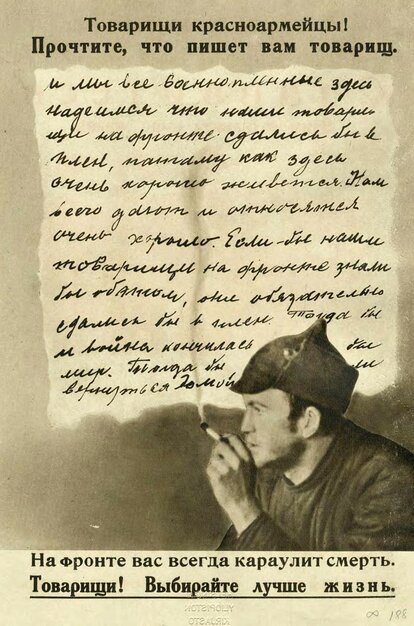 Товарищи красноармейцы!
Прочтите, что пишет вам товарищ.
и мы все военнопленные здесь
надеемся что наши товари-
щи на фронте сдались бы в
плен, потаму как здесь
очень хорошо живется. Нам
всего дают и относятся
очень хорошо. Если бы наши
товарищи на фронте знали
бы обэтом, они обязательно
сдались бы в плен. Тогда бы
и война кончилась бы
мир. Тогда бы ли
вернуться домой
На фронте вас всегда караулит смерть.
Товарищи! Выбирайте лучше жизнь.
188